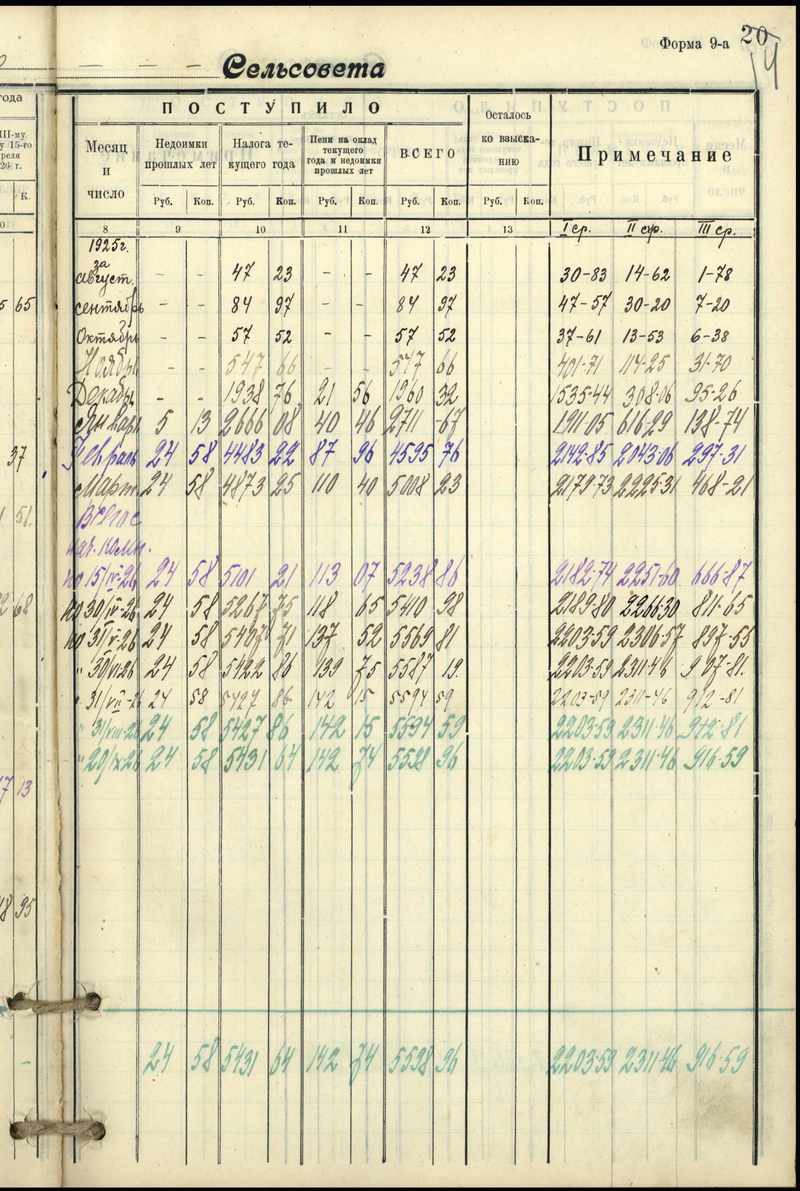 Форма 9-а 20
14
Сельсовета
ПОСТУПИЛО
Месяц и число
Недоимки прошлых лет
Налога текущего года
Пени на оклад текущего года и недоимки прошлых лет
ВСЕГО
Осталось ко взысканию
Примечание
Руб. Коп. Руб. Коп. Руб. Коп. Руб. Коп. Руб. Коп.
8 9 10 11 12 13 I ср. II ср. III ср.
1925г.
за
август. - - 47 23 - - 47 23 30-83 14-62 1-78
65 сентябрь - - 84 97 - - 84 97 47-57 30-20 7-20
Октябрь - - 57 52 - - 57 52 37-61 13-53 6-38
Ноябрь - - 547 66 - - 547 66 401-71 114-25 31-70
Декабрь - - 1938 76 21 56 1960 32 1535-44 308-06 95-26
Январь 5 13 2666 08 40 46 2711 67 1911-05 616-29 138-74
37 Февраль 24 58 4483 22 87 96 4595 76 2142-85 2043-06 297-31
Март 24 58 4873 25 110 40 5008 23 2179-73 2225-31 468-21
51. Всего с
нач. комп.
по 15/IV-26 24 58 5101 21 113 07 5238 86 2182-74 2251-60 666-87
68 по 30/IV-26 24 58 5267 75 118 65 5410 98 2189-80 2266-30 811-65
по 31/V-26 24 58 5407 71 137 52 5569 81 2203-59 2306-57 897-55
" 30/VI-26 24 58 5422 86 139 75 5587 19. 2203-59 2311-46 907-81.
" 31/VII-26 24 58 5427 86 142 15 5594 59 2203-59 2311-46 912-81
" 31/VIII-26 24 58 5427 86 142 15 5594 59 2203-59 2311-46 912-81
" 20/IX-26 24 58 5431 64 142 74 5598 96 2203-59 2311-46 916-59
13
95
24 58 5431 64 142 74 5598 96 2203-59 2311-46 916-59